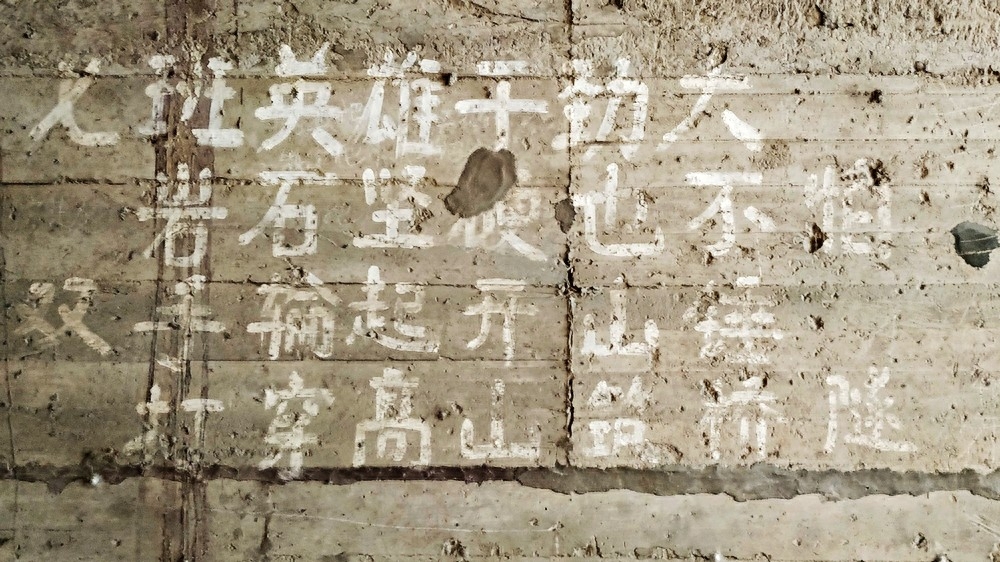 八班英雄干劲大
岩石坚硬也不怕
双手掄起开山锤
打穿高山筑桥隧